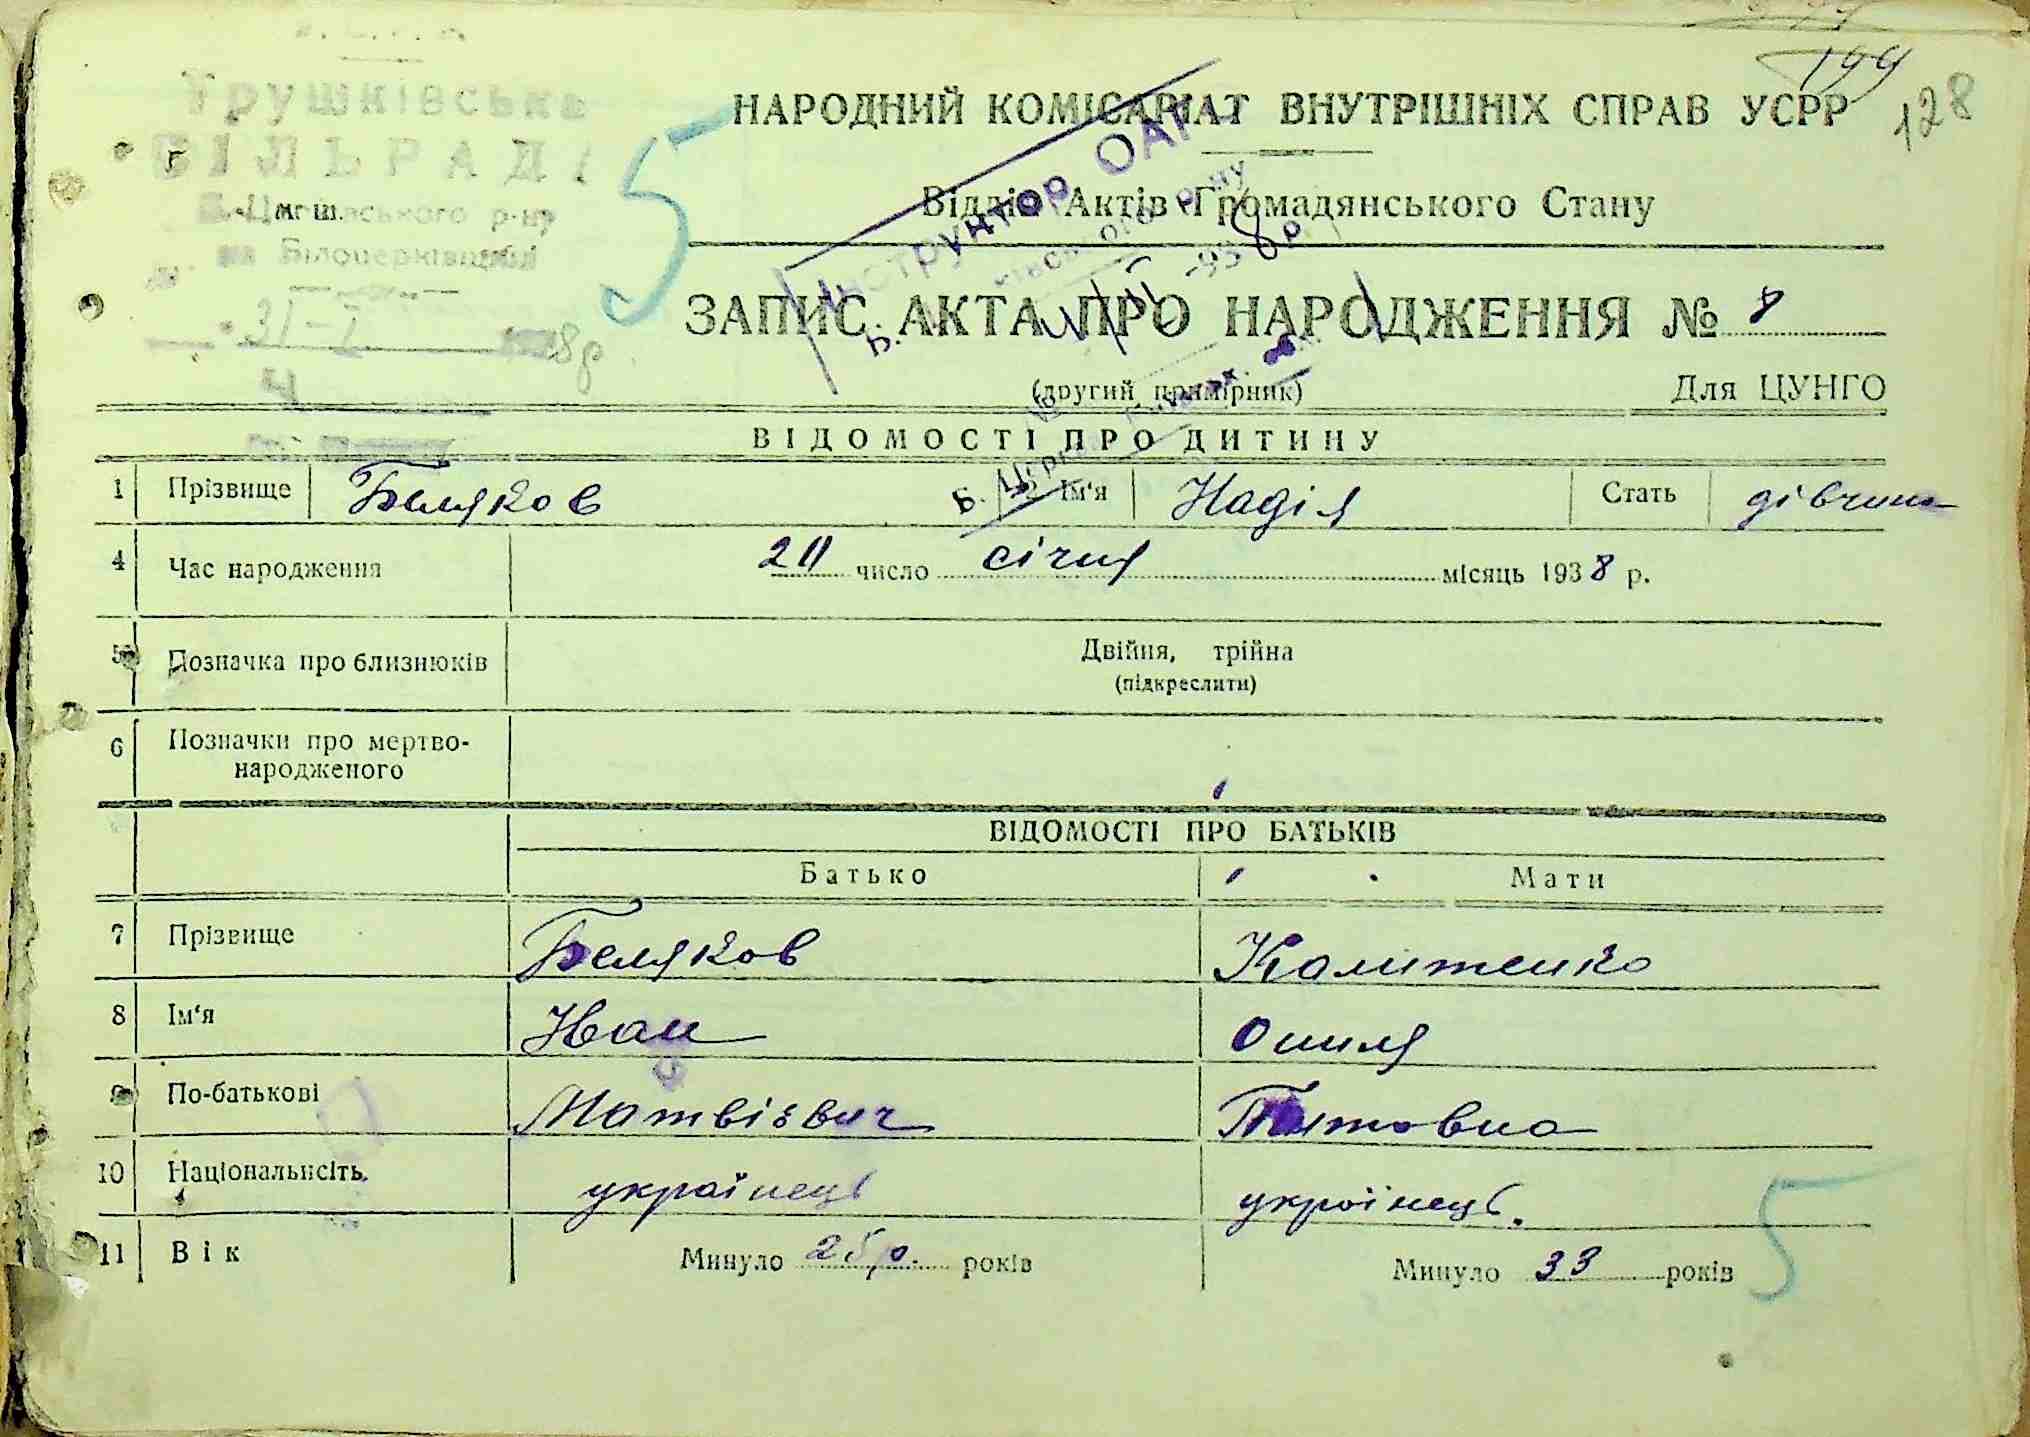 Трушківська
СІЛЬРАДА
Б.-Церківського р-ну
на Білоцерківщині
31-I 38р
НАРОДНИЙ КОМІСАРІАТ ВНУТРІШНІХ СПРАВ УСРР
199
128
5
Відділ Актів Громадянського Стану
Інструктор ОАГС
ЗАПИС АКТА ПРО НАРОДЖЕННЯ № 8
(другий примірник) Для ЦУНГО
ВІДОМОСТІ ПРО ДИТИНУ
1 Прізвище Беляков Ім'я Надія Стать дівчина
4 Час народження 20 число січня місяць 1938 р.
5 Позначка про близнюків Двійня, трійна
(підкреслити)
6 Позначки про мертво-
народженого
ВІДОМОСТІ ПРО БАТЬКІВ
Батько Мати
7 Прізвище Беляков Калитенко
8 Ім'я Иван
9 По-батькові Матвієвич Титовна
10 Національність українець українець.
11 Вік Минуло 25р. років Минуло 33 років
5